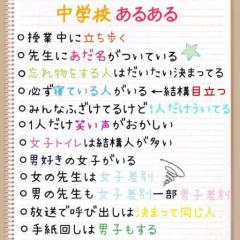 中学校 あるある
○授業中に立ち歩く
○先生にあだ名がついている
○忘れ物をする人はだいたい決まってる
○必ず寝ている人がいる ←結構目立つ
○みんなふざけてるけど1人だけういてる
○1人だけ笑い声がおかしい
○女子トイレは結構人が多い
○男好きの女子がいる
○女の先生は女子差別
○男の先生も女子差別一部男子差別
○放送で呼び出しは決まって同じ人
○手紙回しは男子もする